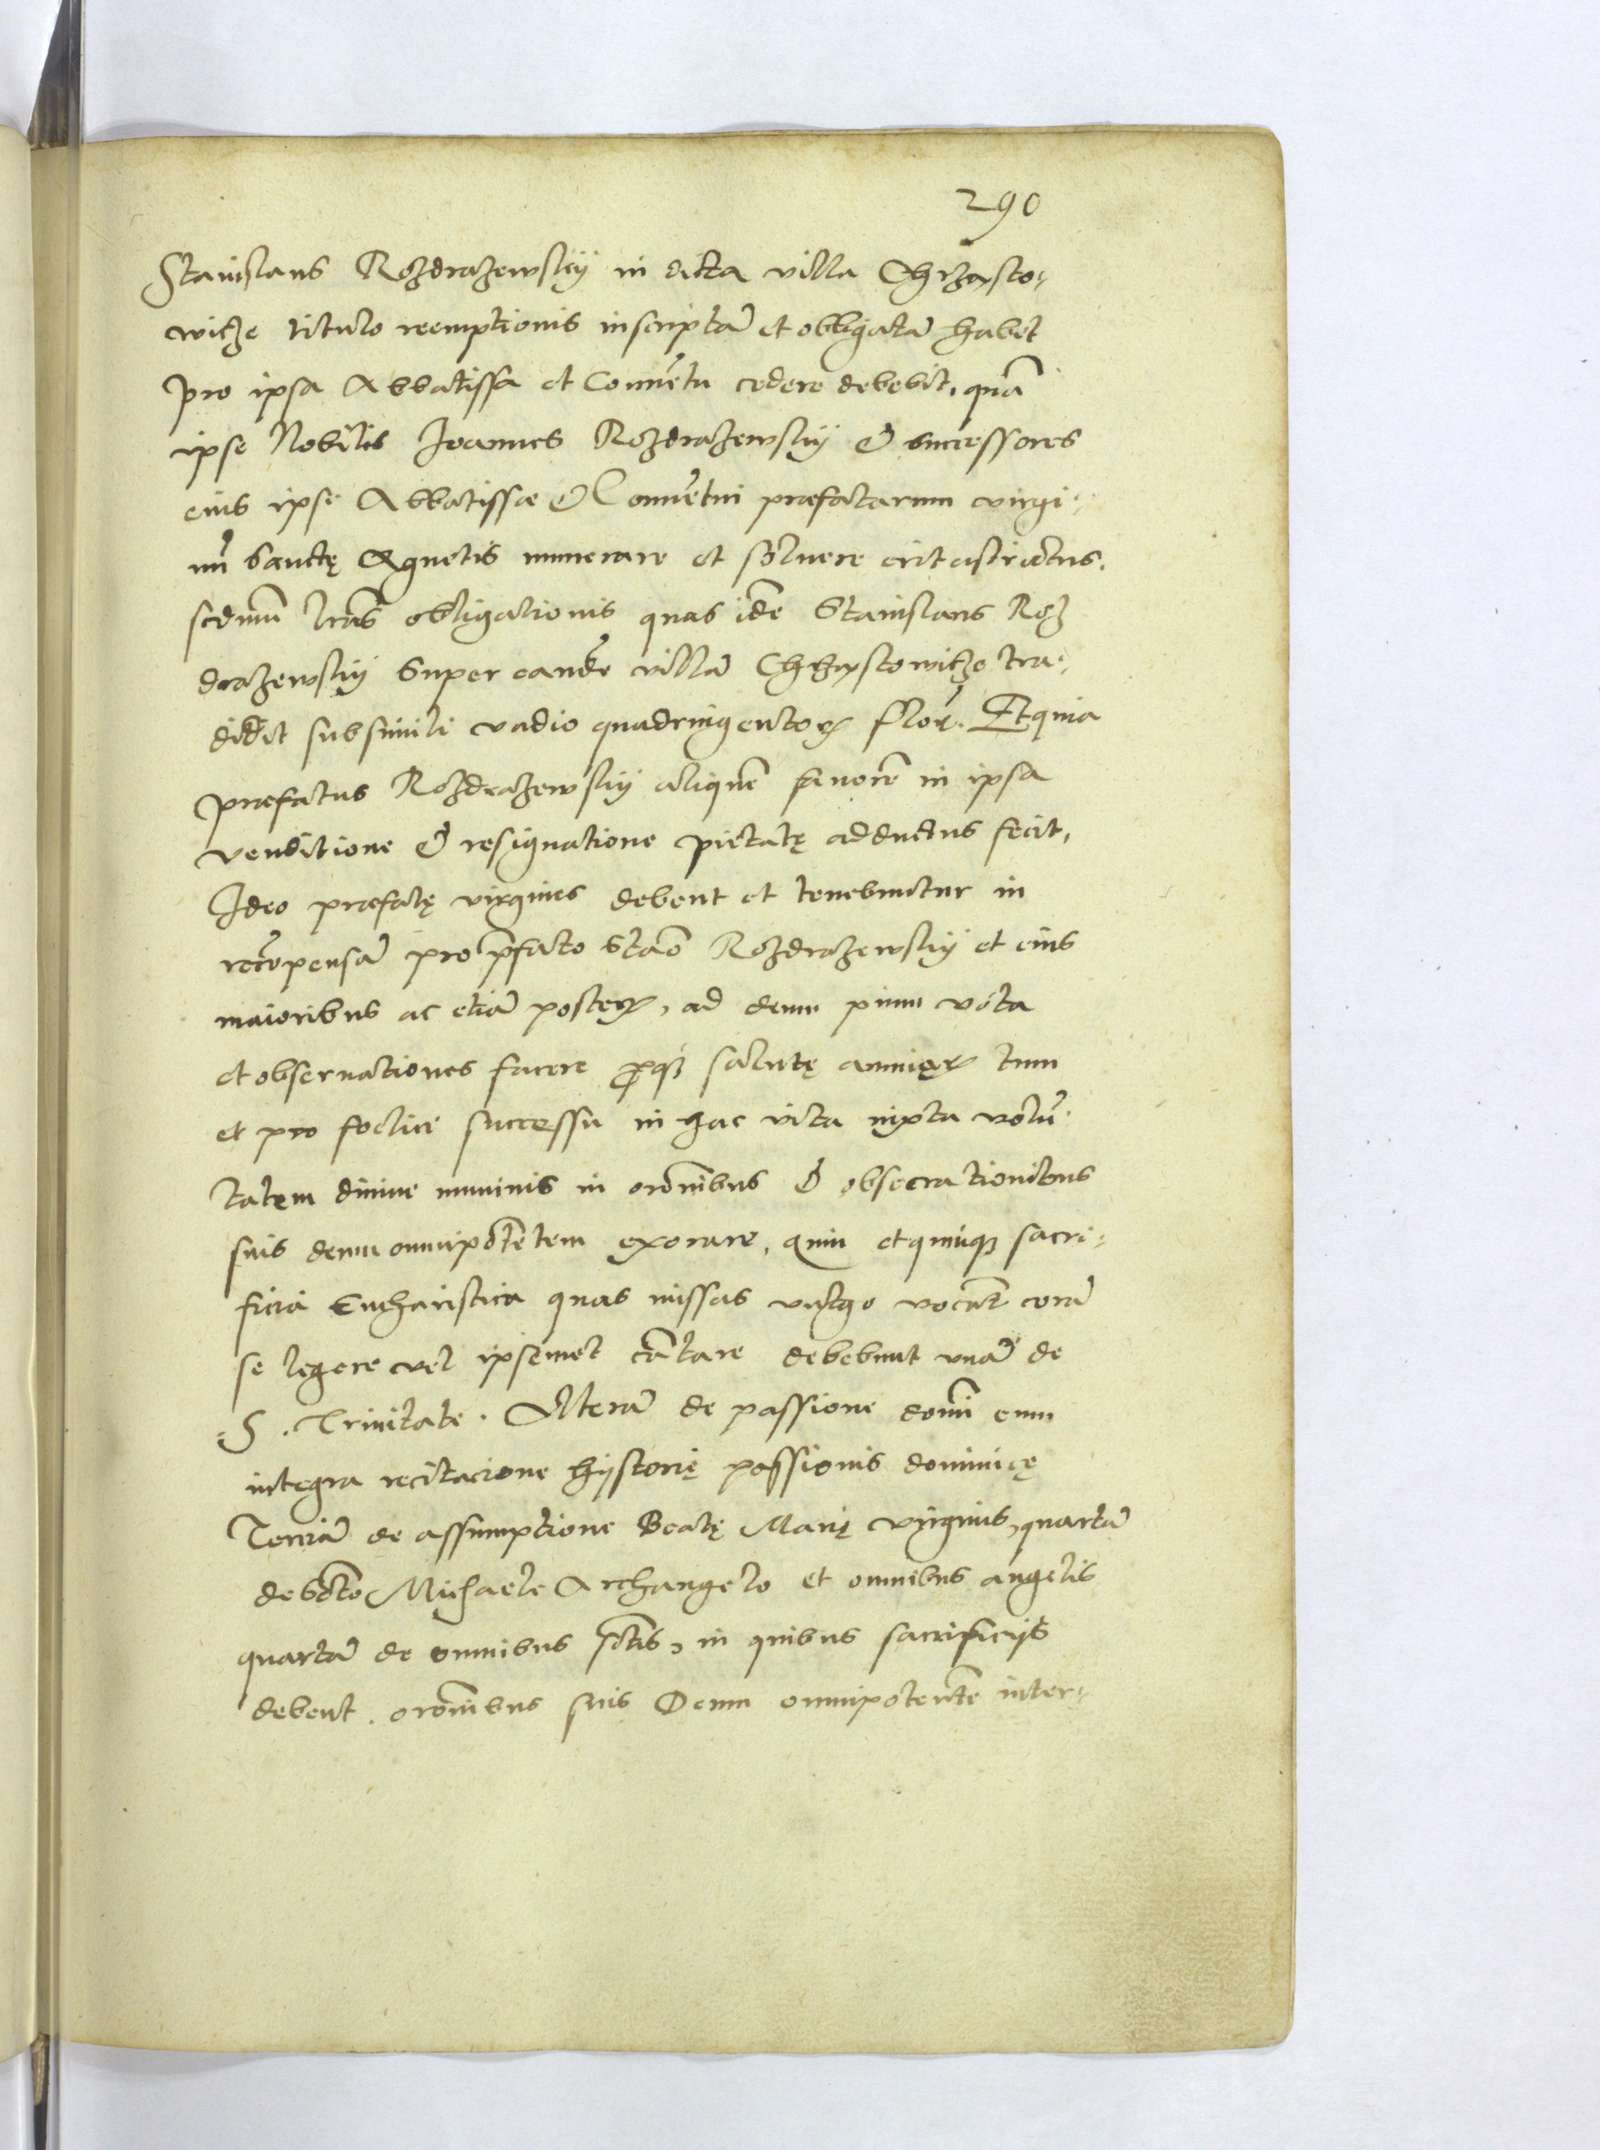 290
Stanislaus Rozdrazewskij in dicta villa Chrząsto-
witze titulo reemptionis inscriptā et obligatā habet
pro ipsa Abbatissa et Conuētu cedere debebit, quā
ipse Nobilis Joannes Rozdrazewskij & successores
eius ipse Abbatissæ & Conuētui præfatarum virgi-
nū Sanctę Agnetis numerare et soluere erit astrictus.
scdmū lrās obligationis quas idē Stanislaus Roz
drazewskij super eandē villā Chrząstowitze tra-
didit sub simili vadio quadringentoꝝ flor. Et quia
præfatus Rozdrazewskij aliquē fauorē in ipsa
venditione & resignatione pietatę adductus fecit,
Ideo præfatę virgines debent et tenebuntur in
recōpensā pro p̄fato Stāo Rozdrazewskij et eius
maioribus ac etiā posteꝝ, ad deum pium vota
et obseruationes facere p̄ salutę animąꝝ tum
et pro foelici successu in hac vita iuxta volū-
tatem diuine numinis in orōnibus & obsecrationibus
suis deum omnipotētem exorare, quin et quinqꝫ sacri-
ficia Eucharistica quas missas vulgo vocāt corā
se legere vel ipsemet cātare debebunt vnā de
S. Trinitate. Alterā de passione domī cum
integra recitacione hystorię passionis dominicę
Terciā de assumptione Beatę Marię virginis, quartā
de bto Michaele Archangelo et omnibus angelis
quartā de omnibus sctis, in quibus sacrificijs
debent orōnibus suis Deum omnipotentē inter-